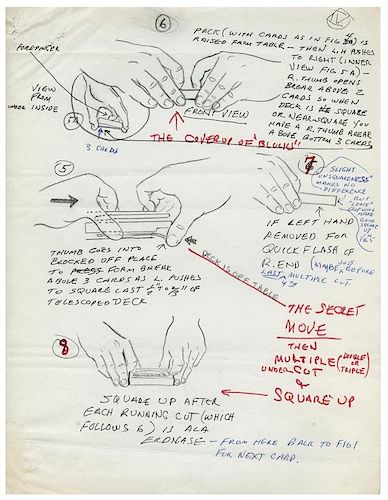 6
IV
PACK (WITH CARDS AS IN FIG 4) IS
RAISED FROM TABLE - THEN L.H PUSHES
TO RIGHT (INNER
VIEW FIG 5A) -
R. THUMB OPENS
BREAK ABOVE 2
CARDS SO WHEN
DECK IS SQUARE
OR NEAR SQUARE YOU
HAVE A R. THUMB BREAK
ABOVE BOTTOM 3 CARDS
FOREFINGER
VIEW
FROM
INSIDE
5A
3 CARDS
FRONT VIEW
THE COVERUP OF "BLOCKS"
5
THUMB GOES INTO
BLOCKED OFF PLACE
TO PRESS FORM BREAK
ABOVE 3 CARDS AS L. PUSHES
TO SQUARE LAST ½" TO
TELESCOPED DECK
DECK IS OFF TABLE
7
SLIGHT
UNSQUARENESS
MAKES NO
DIFFERENCE
BUT
IF LEFT HAND
REMOVED FOR
QUICK FLASH OF
R. END (MAYBE JUST BEFORE
LAST MULTIPLE CUT
4TH
THE SECRET
MOVE
THEN
MULTIPLE (DOUBLE OR
TRIPLE)
UNDER CUT
&
SQUARE UP
8
SQUARE UP AFTER
EACH RUNNING CUT (WHICH
FOLLOWS 6) IS ALA
ERDNASE - FROM HERE BACK TO FIG 1
FOR NEXT CARD.